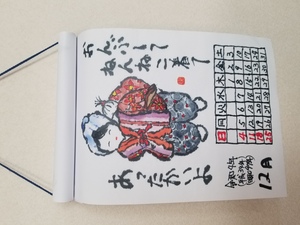 おんぶして
ねんねこ着て
あったかいよ
令和4年
(平成34年)
(昭和97年)
12月
日 月 火 水 木 金 土
1 2 3
4 5 6 7 8 9 10
11 12 13 14 15 16 17
18 19 20 21 22 23 24
25 26 27 28 29 30 31